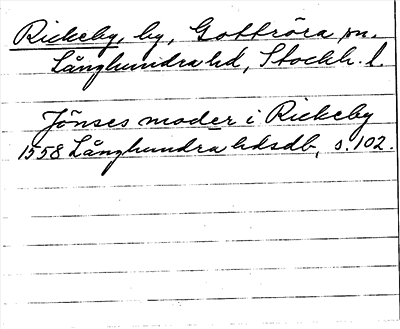 Rickeby, by, Gottröra sn.
Långhundra hd, Stockh. l.
Jönses moder i Rickeby
1558 Långhundra hdsdb, s. 102.